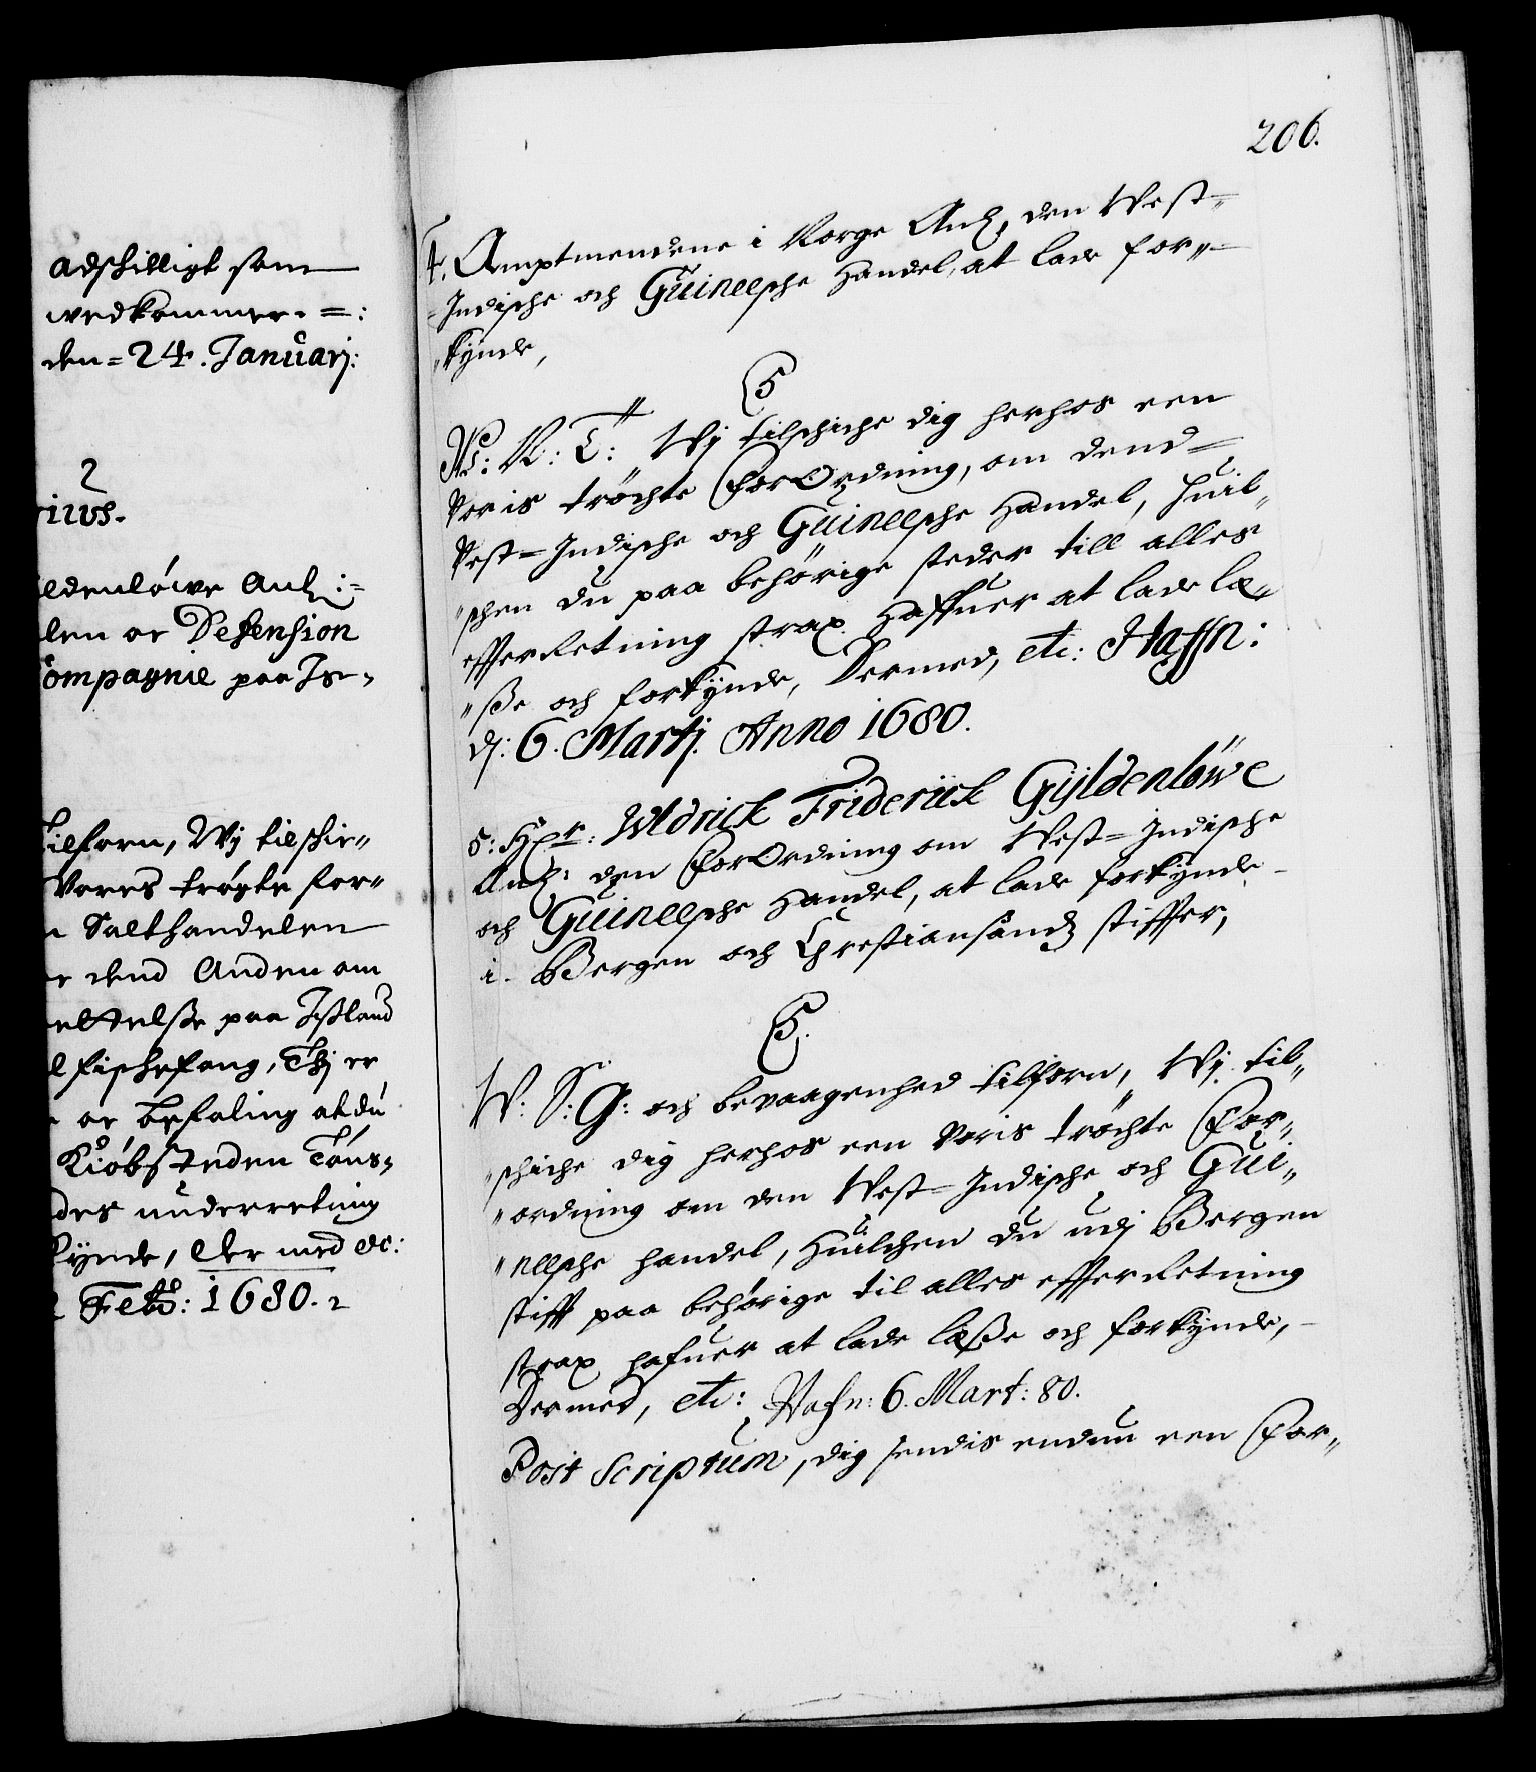 adskilligt som
wedkommer. =:
den = 24. Januarj:
2
rius.
ldenlöwe Anl:=
len oc Defension
Compagnie paa Is=
tilforn, Wij tilskic=
Vores trögte for=
n Salthandelen
r dend Anden om
ettelse paa Issland
l fischefang, Thj er
oc befaling at du
Kiöbsteden Töns=
des underretning
kynde, Der med etc:
Feb: 1680.
206.
4. Amptmendene i Norge Anl, den West=
Indische och Guineesche Handel, at lade for=
kynde,
C5
W: N: T: Wij tilschiche dig herhos een
Voris tröchte ForOrdning, om dend=
Vest=Indische och Guineesche Handel, huil=
schen du paa behörige steder till alles
efferRetning strax Haffuer at lade læ=
sse och forkynde, Dermed, etc: Haffn:
dj: 6. Martj. Anno 1680.
5: Her: Wldrick Friderick Gyldenlöwe
Anl: den ForOrdning om West=Indische
och Guineesche Handel, at lade forkynde
i Bergen och Chrestiansands stiffter,
C5.
W: S: G: och bevaagenhed tilforn, Wij til=
schiche dig herhos een Voris tröchte For=
ordning om den West=Indische och Gui=
neesche handel, Huilchen du udj Bergen
stift paa behörige til alles efferRetning
strax hafuer at lade læsse och forkynde,
Dermed, etc: Hafn: 6. Mart: 80.
Post Scriptum, dig sendis endnu een For=